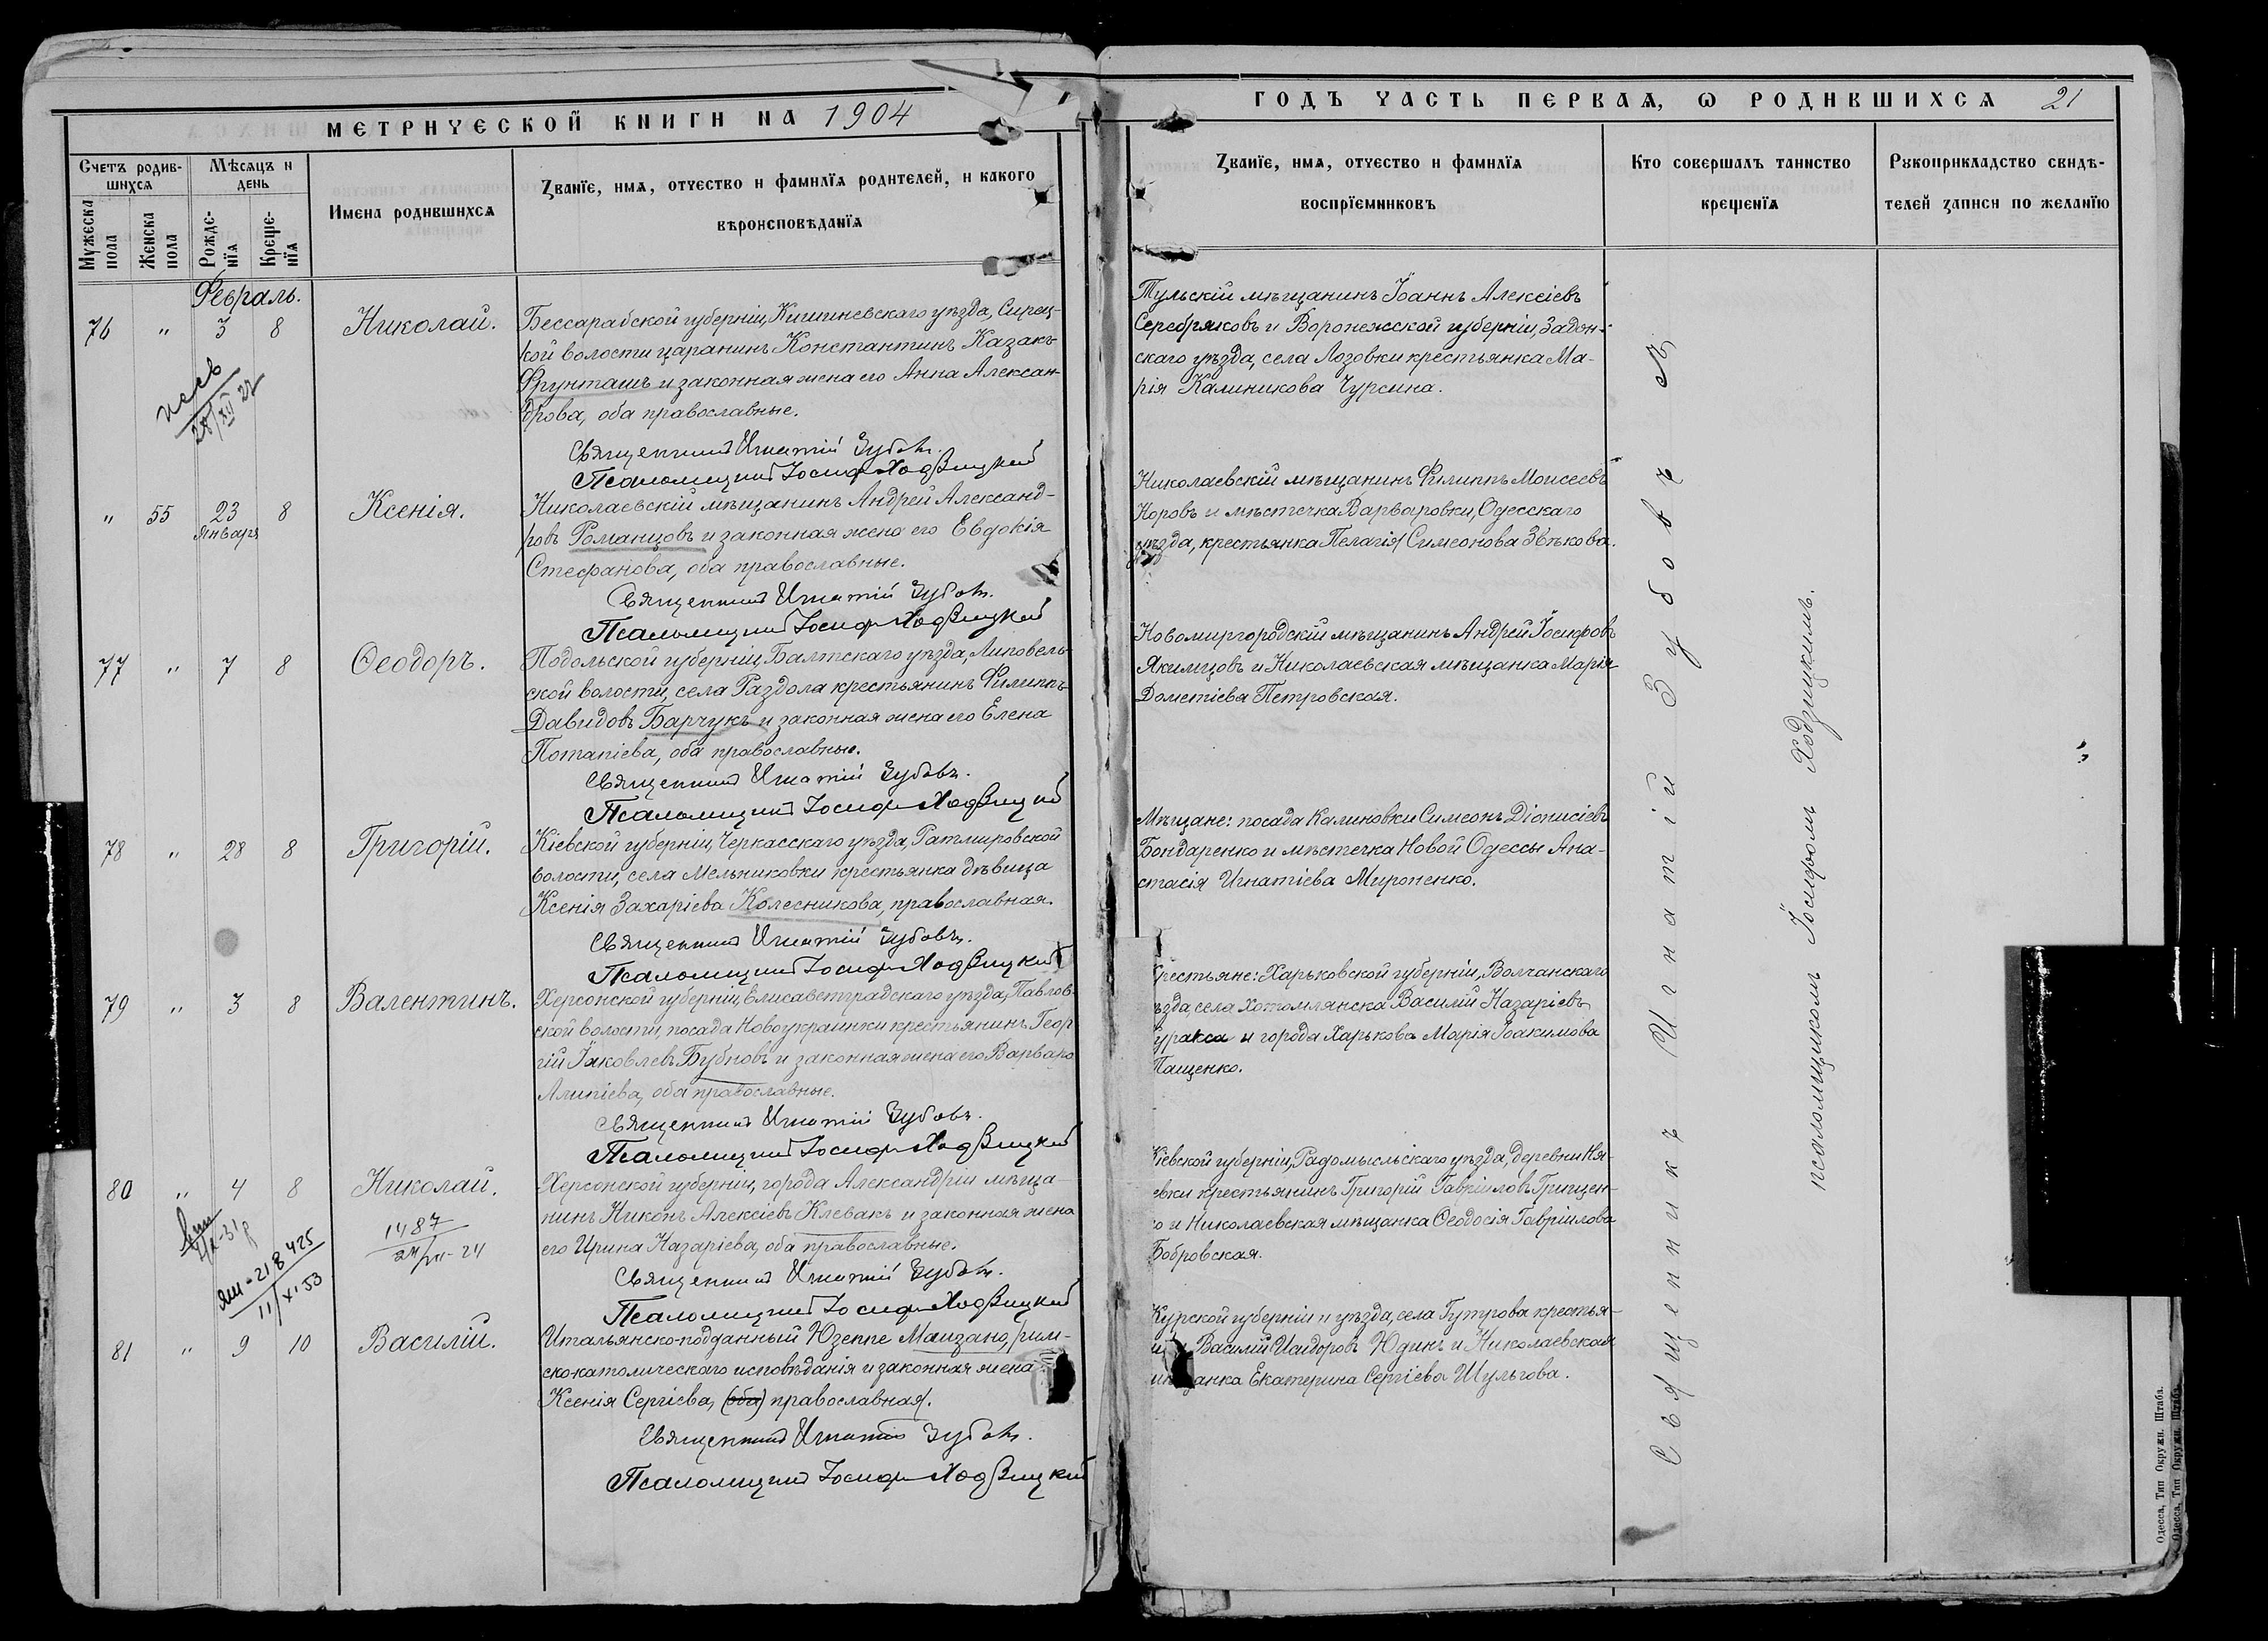 МЕТРИЧЕСКОЙ КНИГИ НА 1904
Счетъ родившихся
Мѣсяцъ и день
Имена родившихся
Званїе, имя, отчество и фамилїя родителей, и какого
вѣроисповѣданїя
Мужеска пола
Женска пола
Рожденїя
Крещенїя
Февраль.
76 " 3 8 Николай.
Бессарабской губерніи, Кишиневскаго уѣзда, Сирец-
кой волости царанинъ Константинъ Казакъ-
Фрунташъ и законная жена его Анна Алексан-
дрова, оба православные.
Священникъ Игнатій Зубовъ.
Псаломщикъ Іосифъ Ходзицкій
28/XII 27
" 55 23 января 8 Ксенія.
Николаевскій мѣщанинъ Андрей Александ-
ровъ Романцовъ и законная жена его Евдокія
Стефанова, оба православные.
Священникъ Игнатій Зубовъ.
Псаломщикъ Іосифъ Ходзицкій
77 " 7 8 Ѳеодоръ.
Подольской губерніи, Балтскаго уѣзда, Липовель-
ской волости, села Раздола крестьянинъ Филиппъ
Давидовъ Барчукъ и законная жена его Елена
Потапіева, оба православные.
Священникъ Игнатій Зубовъ.
Псаломщикъ Іосифъ Ходзицкій
78 " 28 8 Григорій.
Кіевской губерніи, Черкасскаго уѣзда, Ратмировской
волости, села Мельниковки крестьянка дѣвица
Ксенія Захаріева Колесникова, православная.
Священникъ Игнатій Зубовъ.
Псаломщикъ Іосифъ Ходзицкій
79 " 3 8 Валентинъ.
Херсонской губерніи, Елисаветградскаго уѣзда, Павлов-
ской волости, посада Новоукраинки крестьянинъ Геор
гій Іаковлевъ Бубновъ и законная жена его Варвара
Алипіева, оба православные.
Священникъ Игнатій Зубовъ.
Псаломщикъ Іосифъ Ходзицкій
80 " 4 8 Николай.
Херсонской губерніи, города Александріи мѣща-
нинъ Никонъ Алексіевъ Клевакъ и законная жена
его Ирина Назаріева, оба православные.
Священникъ Игнатій Зубовъ.
Псаломщикъ Іосифъ Ходзицкій
1487
ЯШ-218425
11/XI 53
81 " 9 10 Василій.
Итальянско-подданный Юзеппе Манзано, рим-
ско-католическаго исповѣданія и законная жена
Ксенія Сергіева, (оба) православная.
Священникъ Игнатій Зубовъ.
Псаломщикъ Іосифъ Ходзицкій
ГОДЪ ЧАСТЬ ПЕРВАЯ, Ѡ РОДИВШИХСЯ 21
Званїе, имя, отчество и фамилїя
воспрїемниковъ
Кто совершалъ таинство
крещенїя
Рукоприкладство свидѣ-
телей записи по желанїю
Тульскій мѣщанинъ Іоаннъ Алексіевъ
Серебряковъ и Воронежской губерніи, Задон-
скаго уѣзда, села Лозовки крестьянка Ма-
рія Калиникова Чурсина.
Николаевскій мѣщанинъ Филиппъ Моисеевъ
Норовъ и мѣстечка Варваровки, Одесскаго
уѣзда, крестьянка Пелагія Симеонова Звѣкова.
Новомиргородскій мѣщанинъ Андрей Іосифовъ
Якимцовъ и Николаевская мѣщанка Марія
Дометіева Петровская.
Мѣщане: посада Калиновки Симеонъ Діонисіевъ
Бондаренко и мѣстечка Новой Одессы Ана-
стасія Игнатіева Мироненко.
Крестьяне: Харьковской губерніи, Волчанскаго
ѣзда, села Хотомлянска Василій Назаріевъ
уракса и города Харькова Марія Іоакимова
Пащенко.
Кіевской губерніи, Радомысльскаго уѣзда, деревни Ня-
евки крестьянинъ Григорій Гавріиловъ Грищен-
о и Николаевская мѣщанка Ѳеодосія Гавріилова
Бобровская.
Курской губерніи и уѣзда, села Гутрова крестья-
Василій Исидоровъ Юдинъ и Николаевская
мѣщанка Екатерина Сергіева Шульгова.
Священникъ Игнатій Зубовъ съ
псаломщикомъ Іосифомъ Ходзицкимъ.
Одесса, Тип Окружн. Штаба.
Одесса, Тип Окружн. Штаба.